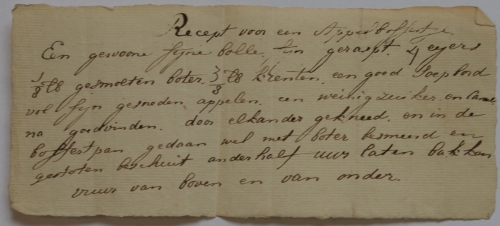 Recept voor een Appelboffertje
Een gewoone fijne bolle, fijn geraspt, 4 eyers
1/8 lb gesmolten boter, 3/8 lb krenten, een goed soepbord
vol fijn gesneden appelen, een weinig zuiker en Canel
na goedvinden, door elkander gekneed, en in de
boffertpan gedaan wel met boter besmeerd en
gestoten beschuit anderhalf uur laten bakken
vuur van boven en van onder.